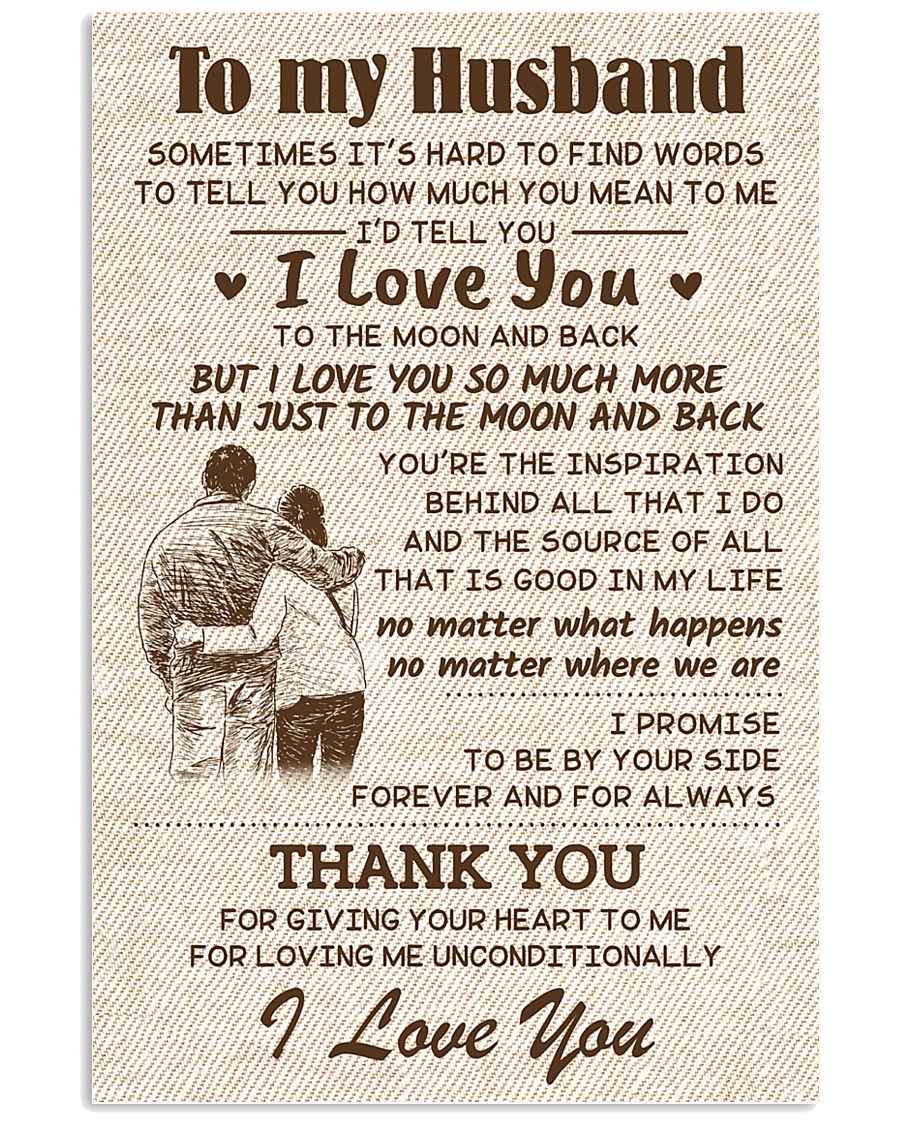 To my Husband
SOMETIMES IT'S HARD TO FIND WORDS
TO TELL YOU HOW MUCH YOU MEAN TO ME
I'D TELL YOU
I Love You
TO THE MOON AND BACK
BUT I LOVE YOU SO MUCH MORE
THAN JUST TO THE MOON AND BACK
YOU'RE THE INSPIRATION
BEHIND ALL THAT I DO
AND THE SOURCE OF ALL
THAT IS GOOD IN MY LIFE
no matter what happens
no matter where we are
I PROMISE
TO BE BY YOUR SIDE
FOREVER AND FOR ALWAYS
THANK YOU
FOR GIVING YOUR HEART TO ME
FOR LOVING ME UNCONDITIONALLY
I Love You